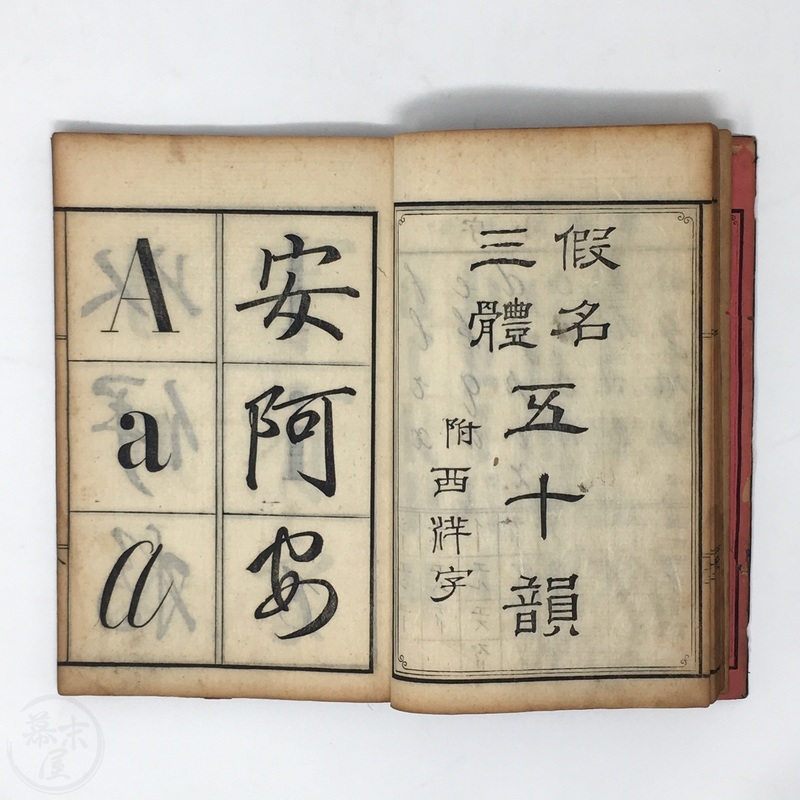 假名
三體
五十韻
附西洋字
安
阿
安
A
a
a
幕末屋